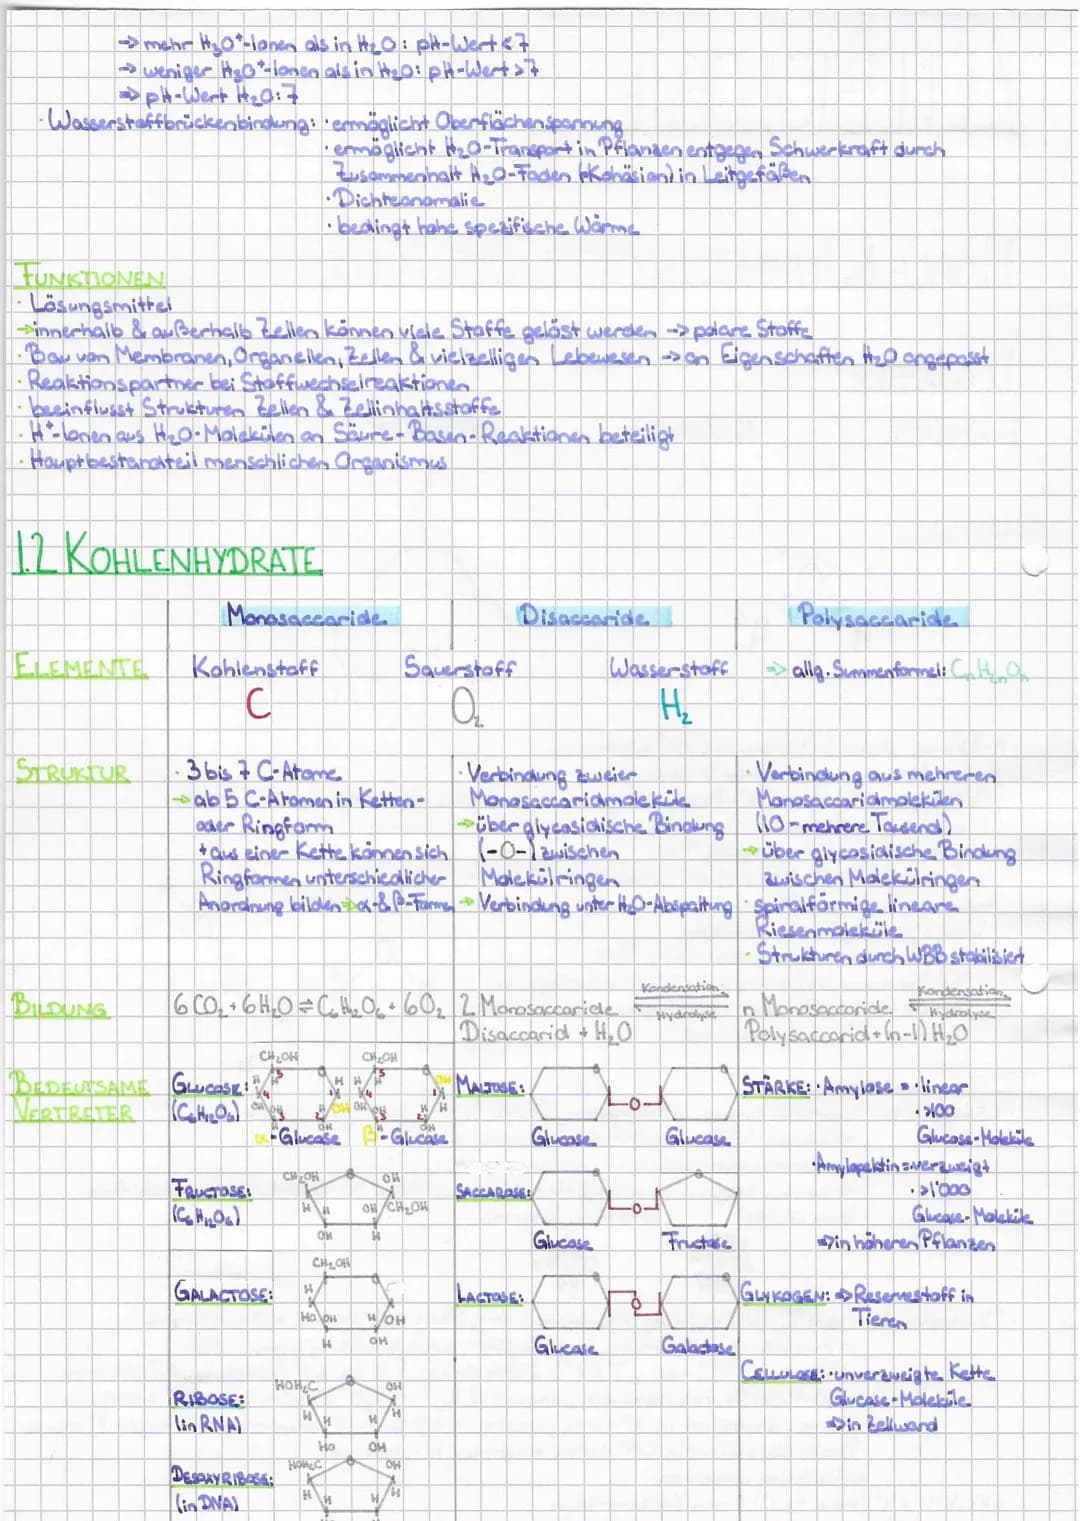 → mehr H₃O⁺-Ionen als in H₂O: pH-Wert < 7
→ weniger H₃O⁺-Ionen als in H₂O: pH-Wert > 7
⇒ pH-Wert H₂O: 7
· Wasserstoffbrückenbindung: · ermöglicht Oberflächenspannung
· ermöglicht H₂O-Transport in Pflanzen entgegen Schwerkraft durch
Zusammenhalt H₂O-Faden (Kohäsion) in Leitgefäßen
· Dichteanomalie
· bedingt hohe spezifische Wärme
FUNKTIONEN
· Lösungsmittel
→ innerhalb & außerhalb Zellen können viele Stoffe gelöst werden → polare Stoffe
· Bau von Membranen, Organellen, Zellen & vielzelligen Lebewesen → an Eigenschaften H₂O angepasst
· Reaktionspartner bei Stoffwechselreaktionen
· beeinflusst Strukturen Zellen & Zellinhaltsstoffe
· H⁺-Ionen aus H₂O-Molekülen an Säure-Basen-Reaktionen beteiligt
· Hauptbestandteil menschlichen Organismus
1.2 KOHLENHYDRATE
Monosaccaride Disaccaride Polysaccaride
ELEMENTE Kohlenstoff Sauerstoff Wasserstoff ⇒ allg. Summenformel: CₙH₂ₙOₙ
C O₂ H₂
STRUKTUR
· 3 bis 7 C-Atome
→ ab 5 C-Atomen in Ketten-
oder Ringform
+ aus einer Kette können sich
Ringformen unterschiedlicher
Anordnung bilden → α- & β-Formen
· Verbindung zweier
Monosaccaridmoleküle
→ über glycosidische Bindung
(-O-) zwischen
Molekülringen
→ Verbindung unter H₂O-Abspaltung
· Verbindung aus mehreren
Monosaccaridmolekülen
(10 - mehrere Tausend)
→ über glycosidische Bindung
zwischen Molekülringen
· spiralförmige lineare
Riesenmoleküle
· Strukturen durch WBB stabilisiert
BILDUNG
6 CO₂ + 6 H₂O ⇌ C₆H₁₂O₆ + 6 O₂
2 Monosaccaride Kondensation
Hydrolyse
Disaccarid + H₂O
n Monosaccaride Kondensation
Hydrolyse
Polysaccarid + (n-1) H₂O
BEDEUTSAME
VERTRETER
GLUCOSE:
(C₆H₁₂O₆)
CH₂OH CH₂OH
α-Glucose β-Glucose
FRUCTOSE:
(C₆H₁₂O₆)
CH₂OH OH
H H OH CH₂OH
OH H
GALACTOSE:
CH₂OH
H
HO OH H OH
H OH
RIBOSE:
(in RNA)
HOH₂C OH
H H H H
HO OH
DESOXYRIBOSE:
(in DNA)
HOH₂C OH
H H H H
MALTOSE:
O
Glucose Glucose
SACCAROSE:
O
Glucose Fructose
LACTOSE:
O
Glucose Galactose
STÄRKE: · Amylose = · linear
· >100
Glucose-Moleküle
· Amylopektin = verzweigt
· >1'000
Glucose-Moleküle
⇒ in höheren Pflanzen
GLYKOGEN: ⇒ Reservestoff in
Tieren
CELLULOSE: · unverzweigte Kette
Glucose-Moleküle
⇒ in Zellwand